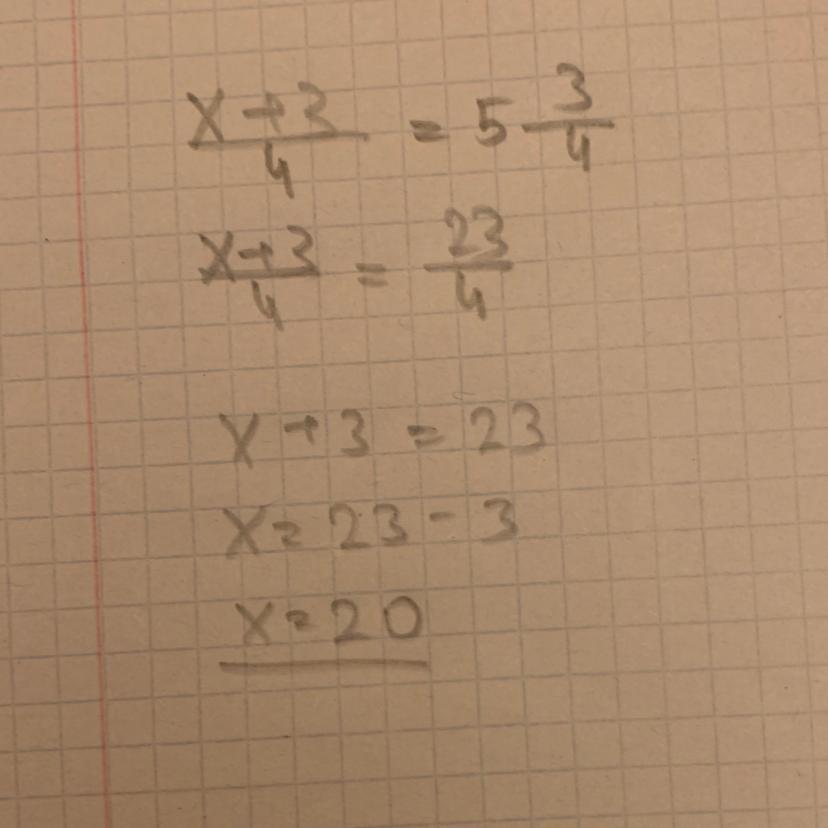 x+3/4 = 5 3/4
x+3/4 = 23/4
x+3 = 23
x= 23-3
x= 20